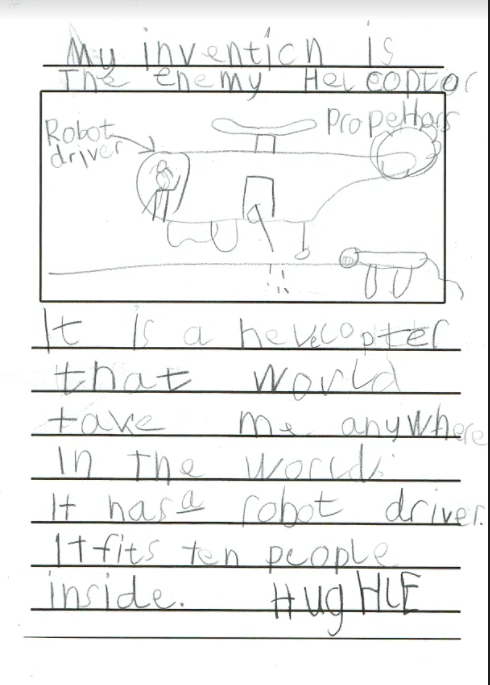 My invention is
The enemy Helcoptor
Robot
driver
Propellars
It is a helecopter
that world
take me anywhere
in the world.
It has a robot driver.
It fits ten people
inside. Hugh LE